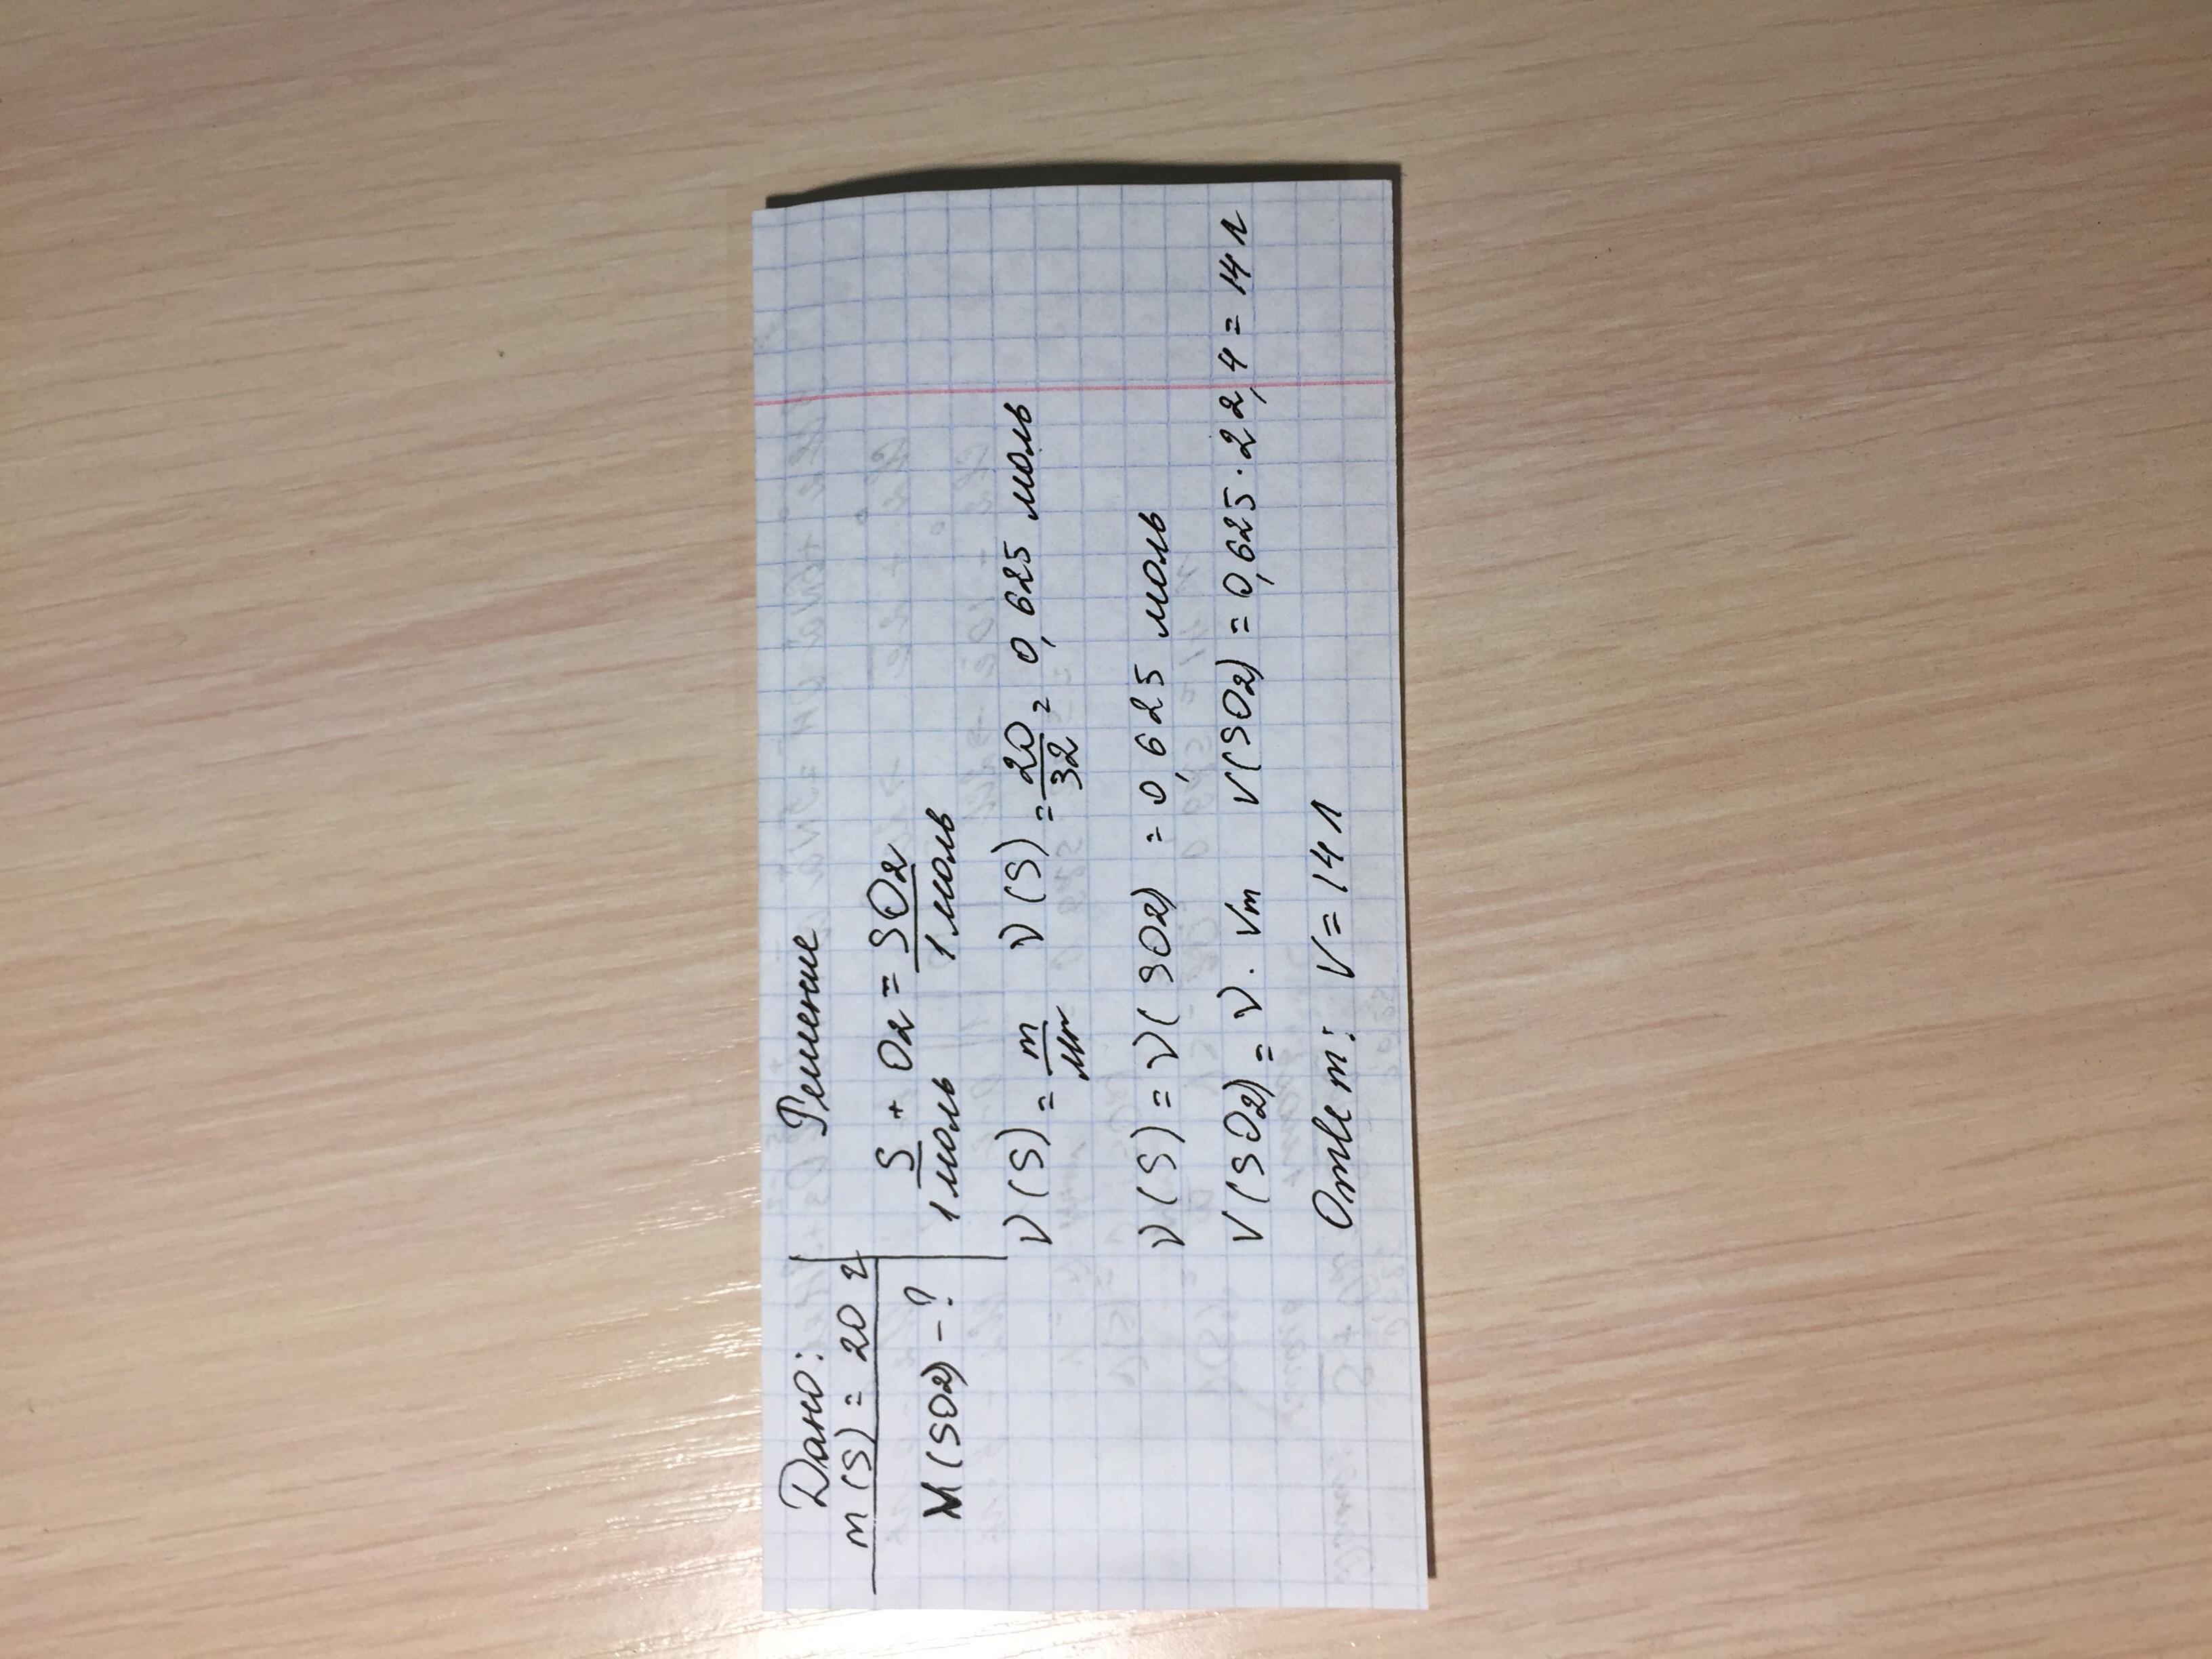 Дано: Решение
m(S) = 20 г
S + O2 = SO2
M(SO2) - ? 1 моль 1 моль
ν(S) = m/Mr ν(S) = 20/32 = 0,625 моль
ν(S) = ν(SO2) = 0,625 моль
V(SO2) = ν · Vm V(SO2) = 0,625 · 22,4 = 14 л
Ответ: V = 14 л